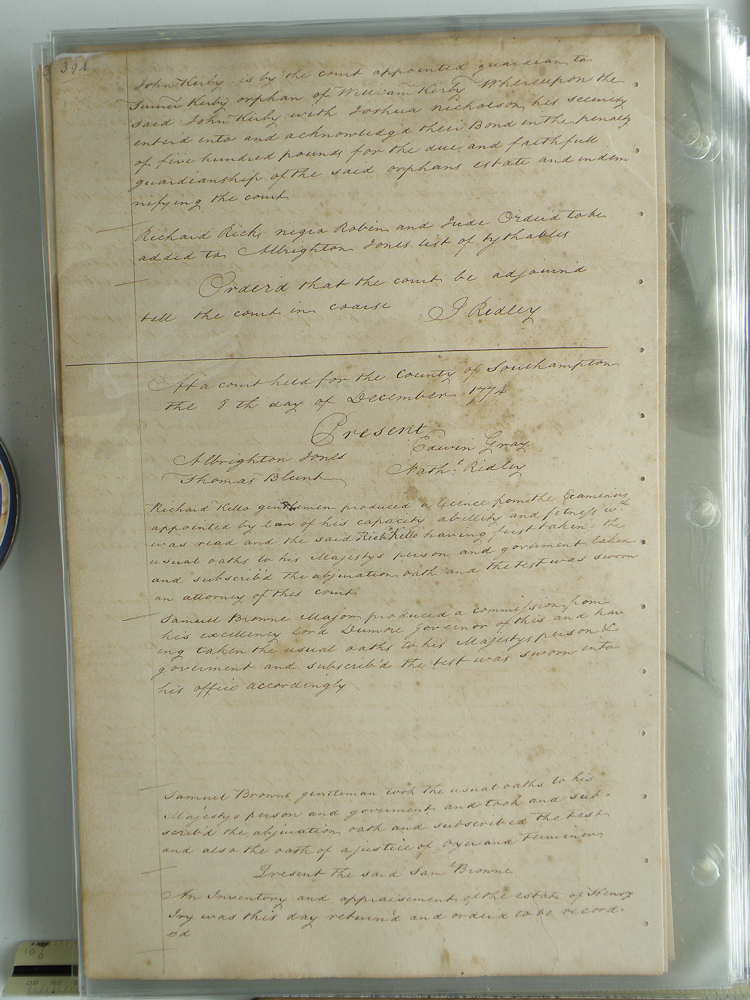 John Kirby is by the court appointed guardian to
Turner Kirby orphan of William Kerby Whereupon the
said John Kirby with Joshua Nicholson his security
enterd into and acknowledgd their Bond in the penalty
of five hundred pounds for the due and faithfull
guardianship of the said orphans estate and indem
nifying the court
Richard Ricks negro Robin and Jude Orderd to be
added to Albrighton Jones list of tythables
Orderd that the court be adjournd
till the court in coarse J Ridley
At a court held for the County of Southampton
the 8th day of December 1774
Present
Albrighton Jones Edwin Gray
Thomas Blunt Nathl Ridley
Richard Kello gentlemen produced a licence from the Examiners
appointed by law of his capacity abillity and fitness wch
was read and the said Richd Kello having first taken the
usual oaths to his Majestys person and government taken
and subscribd the abjuration oath and the test was sworn
an attorney of this court
Samuel Browne Major produced a commission from
his excellency Lord Dumore Governor of this and hav
ing taken the usual oaths to his Majestys person &
goverment and subscribd the test was sworn into
his office accordingly
Samuel Browne gentleman took the usual oaths to his
Majestys person and goverment and took and sub-
scribd the abjuration oath and subscribed the test
and also the oath of a justice of Oyer and Terminer
Present the said Saml Browne
An Inventory and appraisement of the estate of Henry
Ivy was this day returnd and orderd to be record-
ed